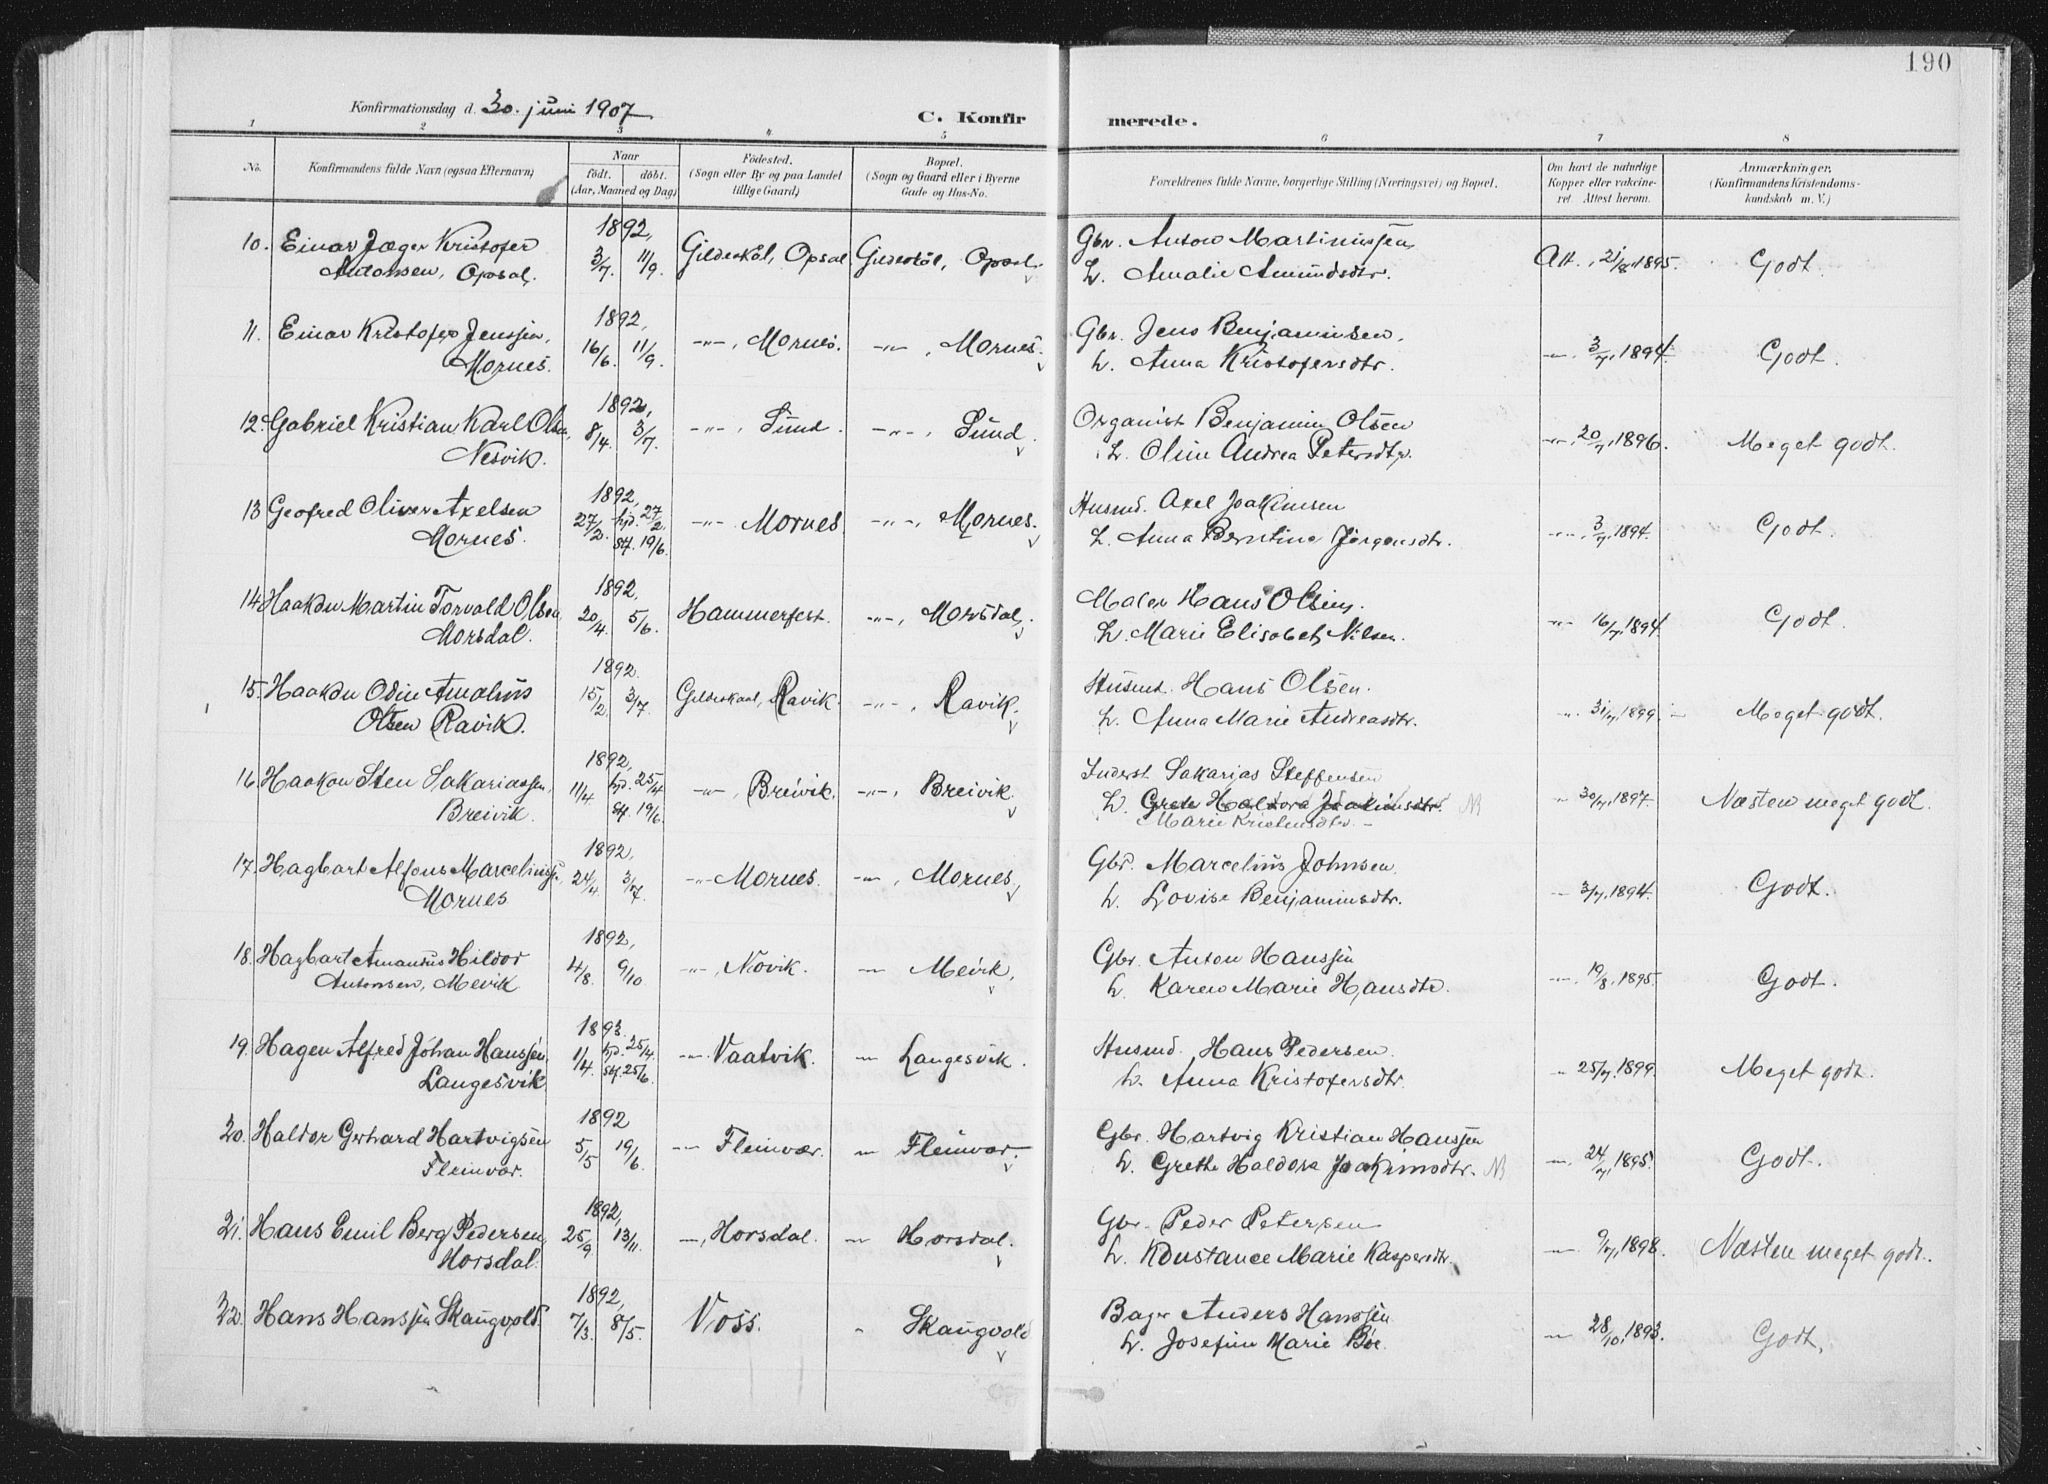 190
Konfirmationsdag d. 30. juni 1907
C. Konfirmerede.
1 2 3 4 5 6 7 8
No.
Konfirmandens fulde Navn (ogsaa Efternavn)
Naar
født. døbt.
(Aar, Maaned og Dag)
Fødested.
(Sogn eller By og paa Landet
tillige Gaard)
Bopæl.
(Sogn og Gaard eller i Byerne
Gade og Hus-No.
Forældrenes fulde Navne, borgerlige Stilling (Næringsvei) og Bopæl.
Om havt de naturlige
Kopper eller vakcine-
ret. Attest herom.
Anmærkninger.
(Konfirmandens Kristendoms-
kundskab m. V.)
1892,
10. Einar Jæger Kristofer 3/7. 11/9. Gildeskål, Opsal. Gildeskål, Opsal. Gbr. Anton Martinussen Att. 21/8. 1895. Godt.
Antonsen, Opsal. H. Amalie Amundsdtr.
1892,
11. Einar Kristofer Jenssen, 16/6. 11/9. -"-, Mornes. -"-, Mornes. Gbr. Jens Benjaminsen. -"- 3/7, 1894. Godt.
Mornes. H. Anna Kristofersdtr.
1892,
12. Gabriel Kristian Karl Olsen, 8/4. 3/7. -"-, Sund. -"-, Sund. Organist Benjamin Olsen -"-, 20/7, 1896. Meget godt.
Nesvik. H. Oline Andrea Petersdtr.
1892,
13 Geofred Oliver Axelsen 27/2. hjd. 27/2. -"- Mornes. -"-, Mornes. Husmd. Axel Joakimsen -"-. 3/7, 1894. Godt.
Mornes. st. 19/6. H. Anna Berntine Jørgensdtr.
1892,
14. Haakon Martin Torvald Olsen, 20/4. 5/6. Hammerfest. -"-, Morsdal. Maler Hans Olsen. -"- 16/7, 1894. Godt.
Morsdal. H. Marie Elisabet Nilsen.
1892.
15. Haakon Odin Amalius 15/2. 3/7. Gildeskaal, Ravik. -"-, Ravik. Husmd. Hans Olsen. -"- 31/7, 1899. Meget godt.
Olsen Ravik. H. Anna Marie Andreasdtr.
1892,
16. Haakon Sten Sakariassen, 11/4 hjd. 25/4 -"-, Breivik. -"-, Breivik. Inderst. Sakarias Steffensen -"- 30/7, 1897. Næsten meget godt.
Breivik. st. 19/6. H. Grete Haldora Joakimsdtr. NB
Marie Kristensdtr. –
1892,
17. Hagbart Alfons Marceliuss. 24/4 3/7. -"- Mornes. -"-, Mornes, Gbr. Marcelius Johnsen. -"- 3/7, 1894. Godt.
Mornes H. Lovise Benjaminsdtr.
1892,
18. Hagbart Amandus Hildor 4/8. 9/10 -"-, Novik. -"- Mevik, Gbr. Anton Hanssen -"-. 19/8, 1895. Godt.
Antonsen, Mevik H. Karen Marie Hansdtr.
1893.
19. Hagen Alfred Johan Hanssen, 1/4. hjd. 25/4. -"- Vaatvik. -"- Langesvik. Husmd. Hans Pedersen. -"- 25/7, 1899. Meget godt.
Langesvik st. 25/6. H. Anna Kristofersdtr.
1892
20. Haldor Gerhard Hartvigsen 5/5 19/6. -"- Fleinvær. -"- Fleinvær. Gbr. Hartvig Kristian Hanssen -"-, 24/7, 1895. Godt.
Fleinvær. H. Grethe Haldora Joakimsdtr. NB
1892,
21. Hans Emil Berg Pedersen, 25/9 13/11. -"-, Horsdal. -"- Horsdal. Gbr. Peder Petersen -"- 9/7, 1898. Næsten meget godt.
Horsdal. H. Konstance Marie Kaspersdtr.
1892,
22. Hans Hanssen Skaugvold. 7/3. 8/5. Voss. -"- Skaugvold Bager Anders Hanssen -"- 28/10, 1893. Godt.
H. Josefine Marie Bøe